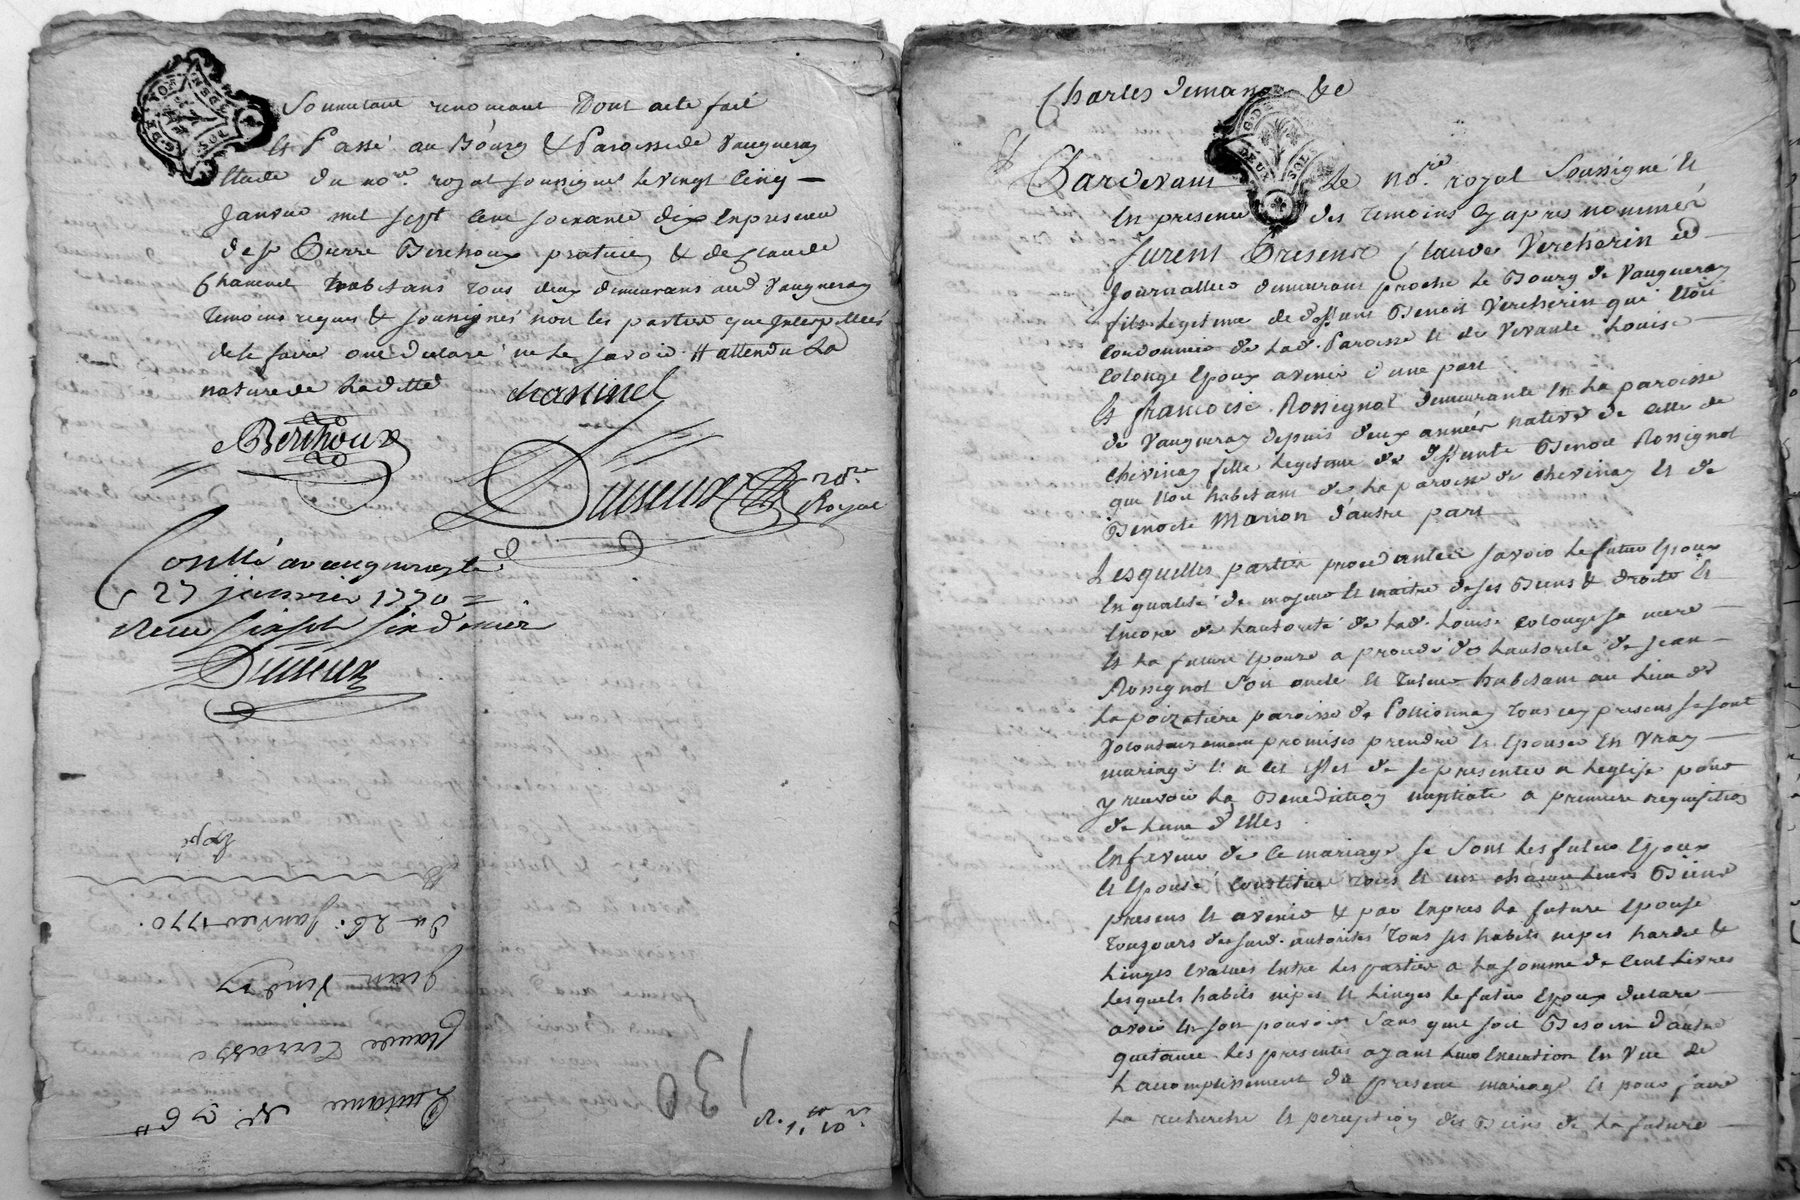 Soumettant renonceant Dont acte fait
Et Passé au Bourg & Paroisse de Vaugneray
Etude du no.re royal soussigné le vingt cinq
Janvier mil sept cent soixante dix En presence
de sr Pierre Berthoux praticien & de Claude
Chammel habitans tous deux demeurans aud Vaugneray
temoins requis & soussignés non les parties que Interpellées
de le faire ont declaré ne le savoir # attendu La
nature de Laditte
chammel
Berthoux
Duseux nore
Royal
Conllé a vaugneray le
27 janvier 1770
Recu six sols six deniers
Duseux
G. DE LYON
DEUX SOL
Expé
Du 26. Janvier 1770.
Jean
Claude
Quitance No. 36
130
R. 1. 10
Charles demans &c
G. DE
DEUX SOL
Pardevant Le no.re royal Soussigné Et
En presence des temoins Cy apres nommés
furent Presents Claude Vercherin
Journallier demeurant proche le Bourg de Vaugneray
fils Legitime de deffunt Benoit Vercherin qui Etoit
Cordonnier de Lad. Paroisse Et de Vivante Louise
Colonge Epoux avenir d'une part
Et francoise Rossignol demeurante En La paroisse
de Vaugneray depuis deux années native de Celle de
Chevinay fille Legitime de deffunt Benoit Rossignol
qui Etoit habitant de La paroisse de Chevinay Et de
Benoite Marion d'autre part
Lesquelles parties procedantes savoir Le futur Epoux
En qualité de majeur Et maitre de ses Biens & droits Et
Encore de Lautorité de Lad. Louise Colonge sa mere
Et La future Epouse a procedé de Lautorité de Jean
Rossignol Son oncle Et tuteur habitant au Lieu de
La poizatiere paroisse de Pollionnay tous icy presens se sont
Volontairement promises prendre Et Epouser En Vray
mariage Et a cet effet de se presenter a Leglise pour
y recevoir La Benediction nuptiale a premiere requisition
de Lune d'Elles
En faveur de Ce mariage se Sont Les futurs Epoux
Et Epouse Constitué tous Et un chacun Leurs Biens
presens Et avenir & par Exprès La future Epouse
toujours desud. autorités tous ses habits nipes hardes &
Linges Evalués Entre Les parties a La somme de Cent Livres
Lesquels habits nipes Et Linges Le futur Epoux declare
avoir En son pouvoir Sans quil soit Besoin d'autre
quitance Les presentes ayant Leur Execution En Vue de
Laccomplissement du present mariage Et pour faire
La recherche Et perception des Biens de La future